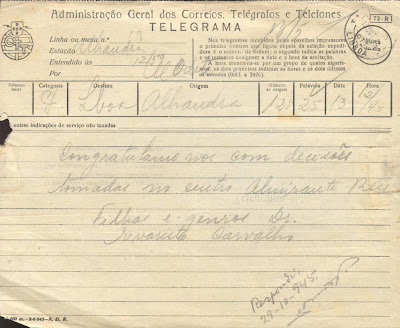 Administração Geral dos Correios, Telégrafos e Telefones
TELEGRAMA
72-R
Linha ou mesa n.º
Estação Alhandra
Entendido às 12/59
Por
Nos telegramas recebidos pelos aparelhos impressores
o primeiro número que figura depois da estação expedidora
é o número de origem; o segundo indica as palavras
e os restantes designam a data e a hora de aceitação.
A hora menciona-se por um grupo de quatro algarismos,
os dois primeiros indicam as horas e os dois últimos
os minutos (0001 a 2400).
Número local
Categoria
Destino
Origem
Número
Palavras
Data
Hora
Lboa Alhandra 25 13
outras indicações de serviço não taxadas
Congratulamo nos com decisões
tomadas no centro Almirante Reis
Filhas e genros Dr.
Evaristo Carvalho
Respondi.
29-10-945.